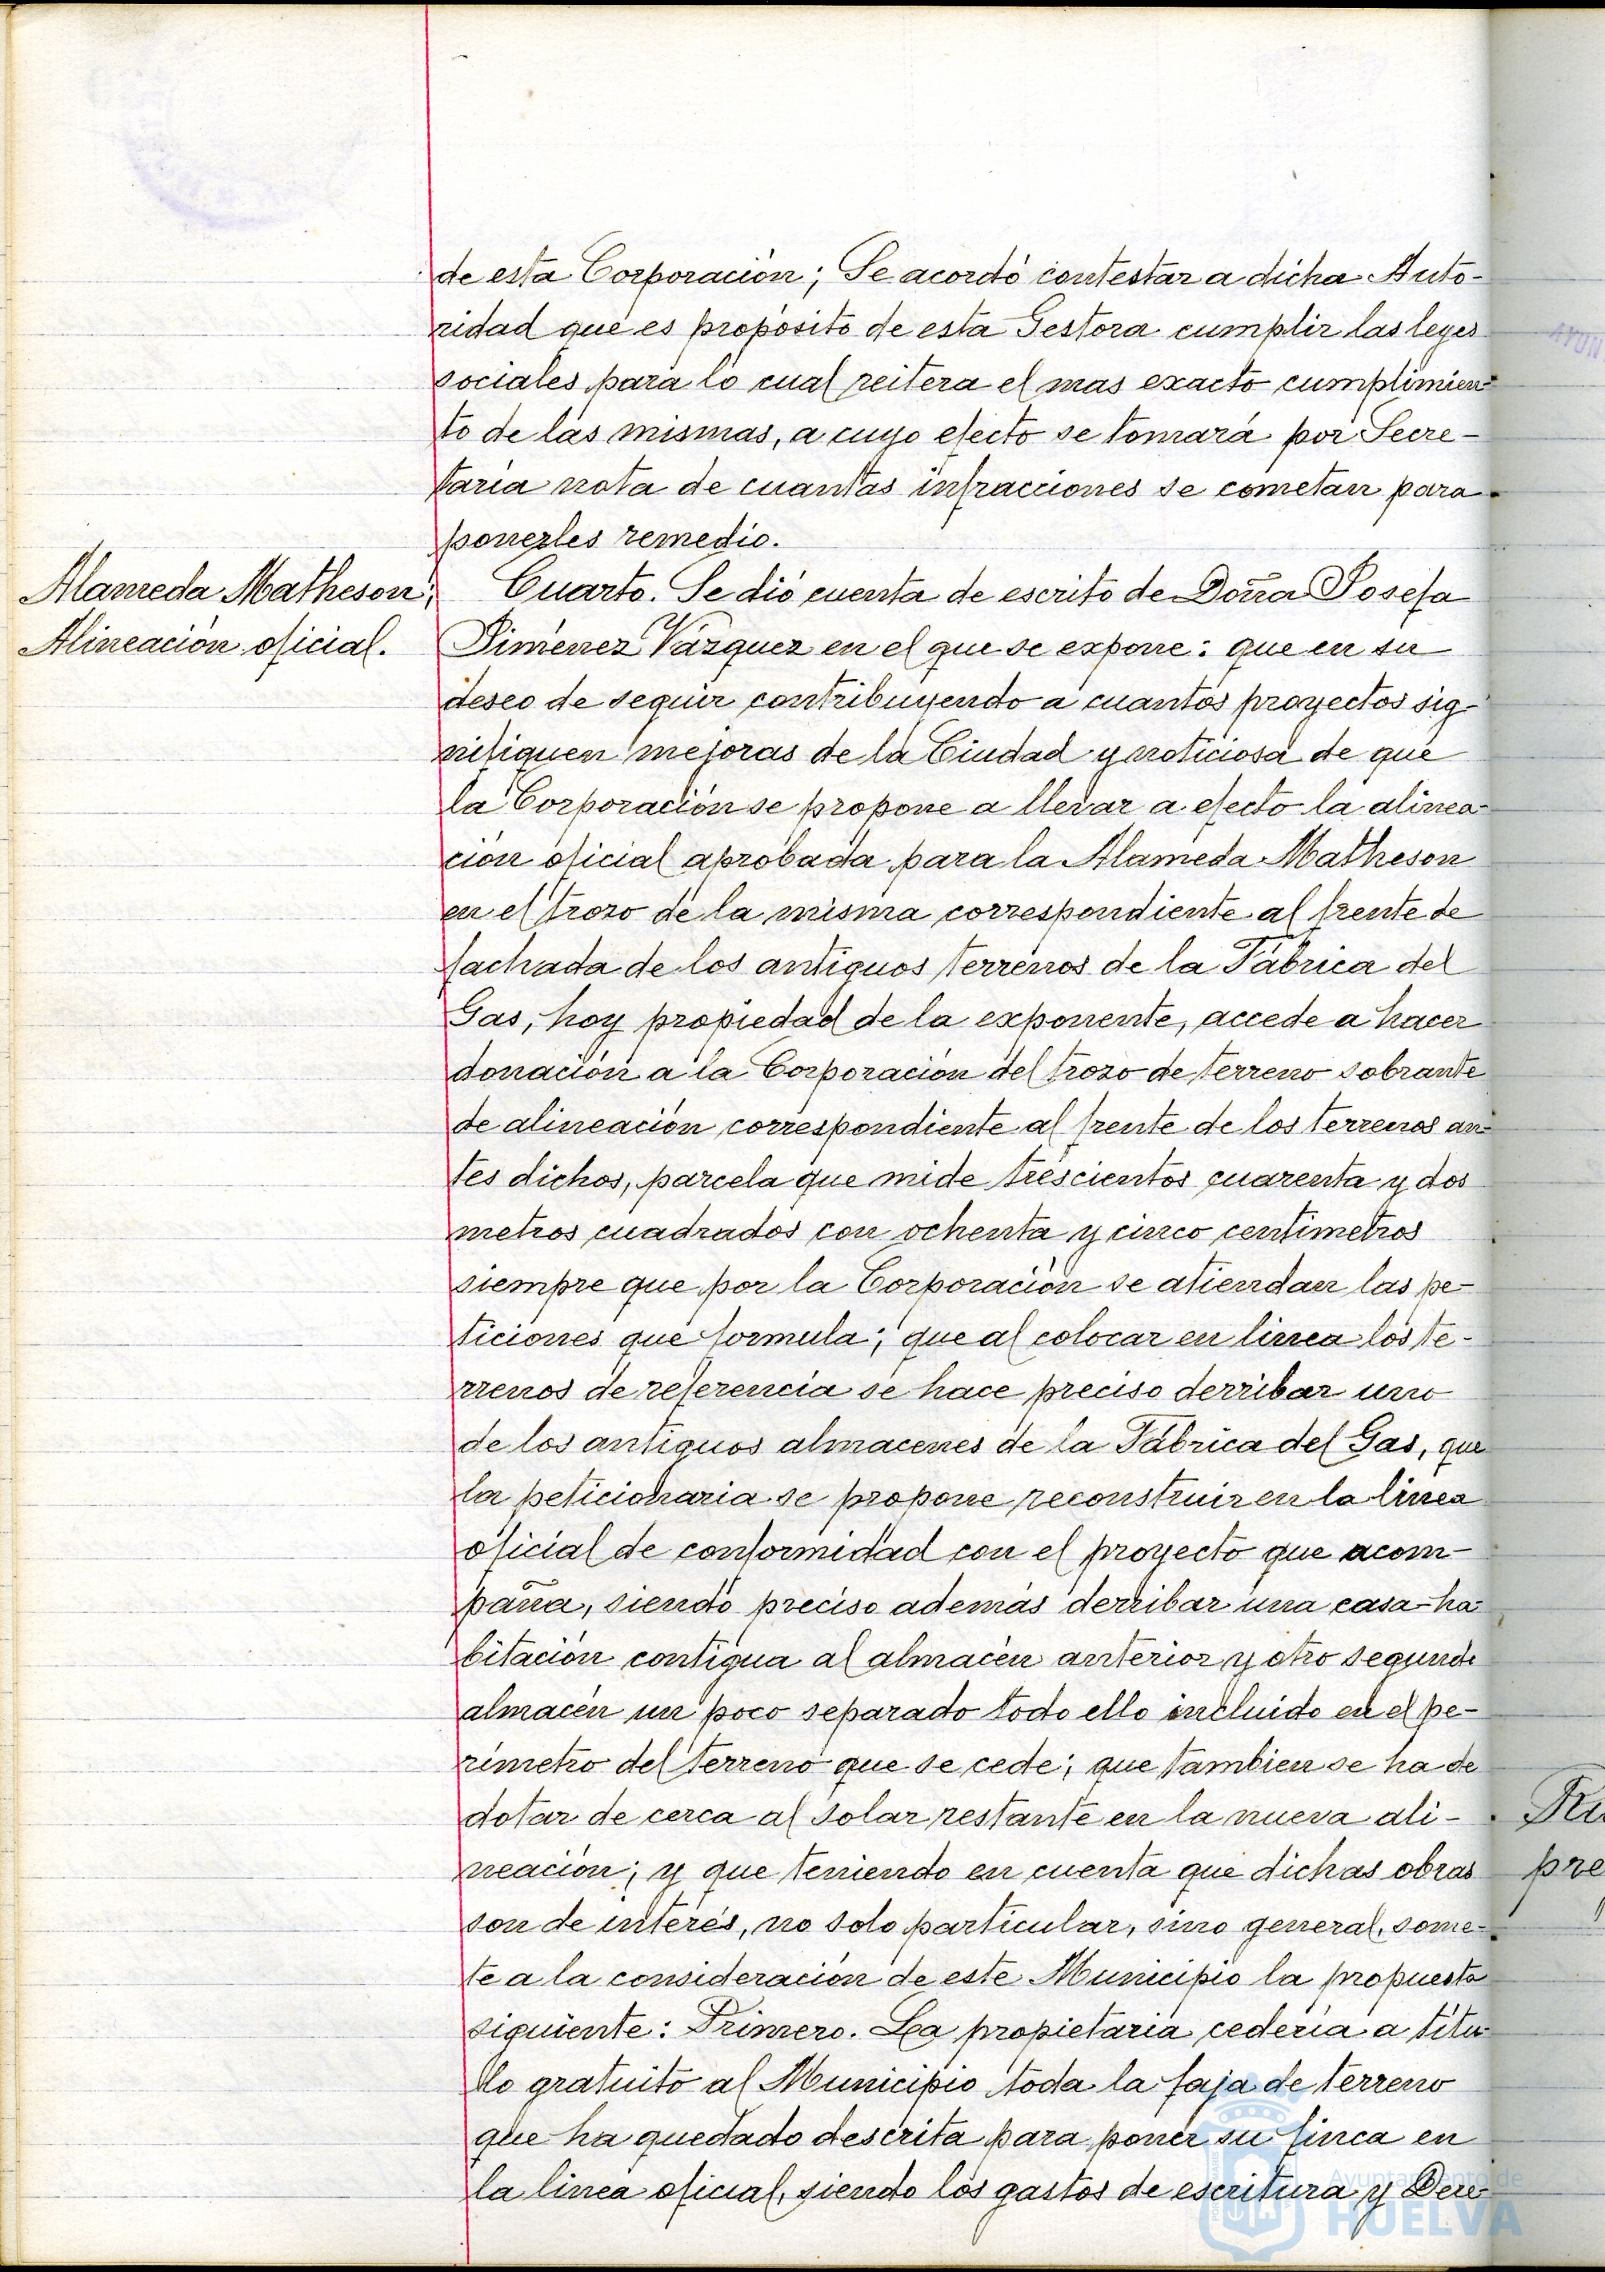 de esta Corporación; Se acordó contestar a dicha Auto-
ridad que es propósito de esta Gestora cumplir las leyes
sociales para lo cual reitera el mas exacto cumplimien-
to de las mismas, a cuyo efecto se tomará por Secre-
taría nota de cuantas infracciones se cometan para
ponerles remedio.
Alameda Matheson;
Alineación oficial.
Cuarto. Se dió cuenta de escrito de Doña Josefa
Jiménez Vázquez en el que se expone: que en su
deseo de seguir contribuyendo a cuantos proyectos sig-
nifiquen mejoras de la Ciudad y noticiosa de que
la Corporación se propone a llevar a efecto la alinea-
ción oficial aprobada para la Alameda Matheson
en el trozo de la misma correspondiente al frente de
fachada de los antiguos terrenos de la Fábrica del
Gas, hoy propiedad de la exponente, accede a hacer
donación a la Corporación del trozo de terreno sobrante
de alineación correspondiente al frente de los terrenos an-
tes dichos, parcela que mide trescientos cuarenta y dos
metros cuadrados con ochenta y cinco centímetros
siempre que por la Corporación se atiendan las pe-
ticiones que formula; que al colocar en linea los te-
rrenos de referencia se hace preciso derribar uno
de los antiguos almacenes de la Fábrica del Gas, que
la peticionaria se propone reconstruir en la linea
oficial de conformidad con el proyecto que acom-
paña, siendo preciso además derribar una casa-ha-
bitación contigua al almacén anterior y otro segundo
almacén un poco separado todo ello incluido en el pe-
rímetro del terreno que se cede; que tambien se ha de
dotar de cerca al solar restante en la nueva ali-
neación; y que teniendo en cuenta que dichas obras
son de interés, no solo particular, sino general, some-
te a la consideración de este Municipio la propuesta
siguiente: Primero. La propietaria cedería a títu-
lo gratuito al Municipio toda la faja de terreno
que ha quedado descrita para poner su finca en
la linea oficial, siendo los gastos de escritura y Dere-
AYUN
pre
Ayuntamiento de
HUELVA